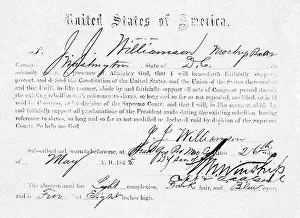 United States of America.
I, J. J. Williamson, Mosby
County, Washington State of D.C.
solemnly in presence of Almighty God, that I will henceforth faithfully support,
protect, and defend the Constitution of the United States, and the Union of the States thereunder;
and that I will, in like manner, abide by and faithfully support all acts of Congress passed during
the existing rebellion with reference to slaves, so long and so far as not repealed, modified, or held
void by Congress, or by decision of the Supreme Court; and that I will, in like manner, abide
by and faithfully support all proclamations of the President made during the existing rebellion having
reference to slaves, so long and so far as not modified or declared void by decision of the Supreme Court:
So help me God.
J. J. Williamson
Subscribed and sworn to before me, at 26th
May A. D. 1865
The above named has Light complexion, Dark hair, and Blue eyes;
and is Five feet Eight inches high.